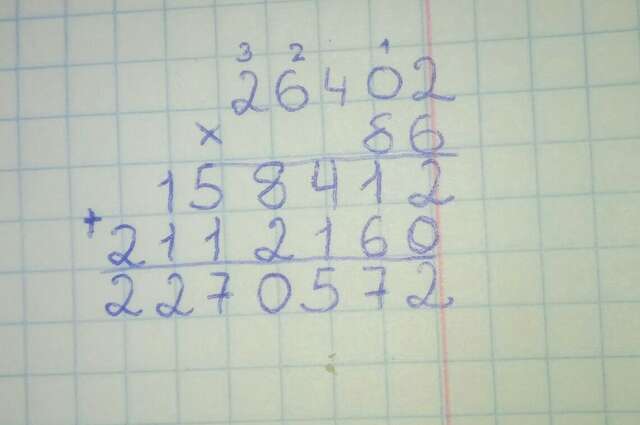 3 2 1
26402
× 86
158412
+ 2112160
2270572